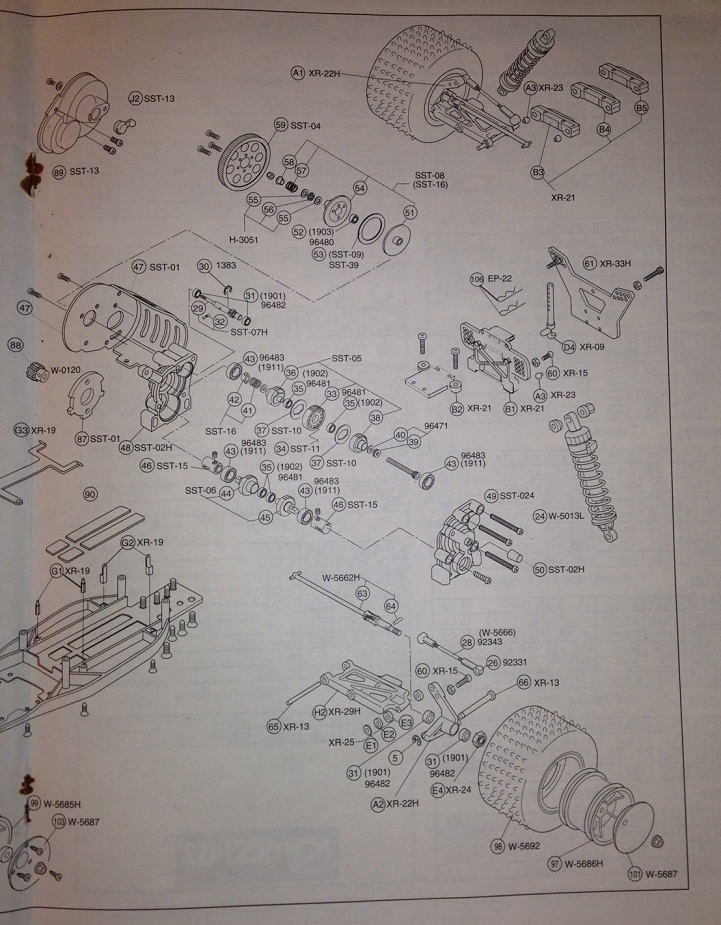 A1 XR-22H
A3 XR-23
B5
B4
B3
XR-21
J2 SST-13
89 SST-13
59 SST-04
58
57
SST-08
(SST-16)
54
55
56
55
51
H-3051
52 (1903)
96480
53 (SST-09)
SST-39
47 SST-01
30 1383
31 (1901)
96482
29
32
SST-07H
61 XR-33H
106 EP-22
D4 XR-09
60 XR-15
A3 XR-23
B2 XR-21
B1 XR-21
47
88
W-0120
87 SST-01
G3 XR-19
43 96483
(1911)
SST-05
36 (1902)
35 96481
33 96481
35 (1902)
38
42
41
SST-16
37 SST-10
34 SST-11
37 SST-10
40 96471
39
43 96483
(1911)
48 SST-02H
43 96483
(1911)
46 SST-15
35 (1902)
96481
43 96483
(1911)
SST-06 44
45
46 SST-15
49 SST-024
24 W-5013L
50 SST-02H
90
G2 XR-19
G1 XR-19
W-5662H
63
64
(W-5666)
28 92343
26 92331
60 XR-15
66 XR-13
65 XR-13
H2 XR-29H
XR-25 E1
E2
E3
5
31 (1901)
96482
31 (1901)
96482
A2 XR-22H
E4 XR-24
98 W-5692
97 W-5686H
101 W-5687
99 W-5685H
103 W-5687